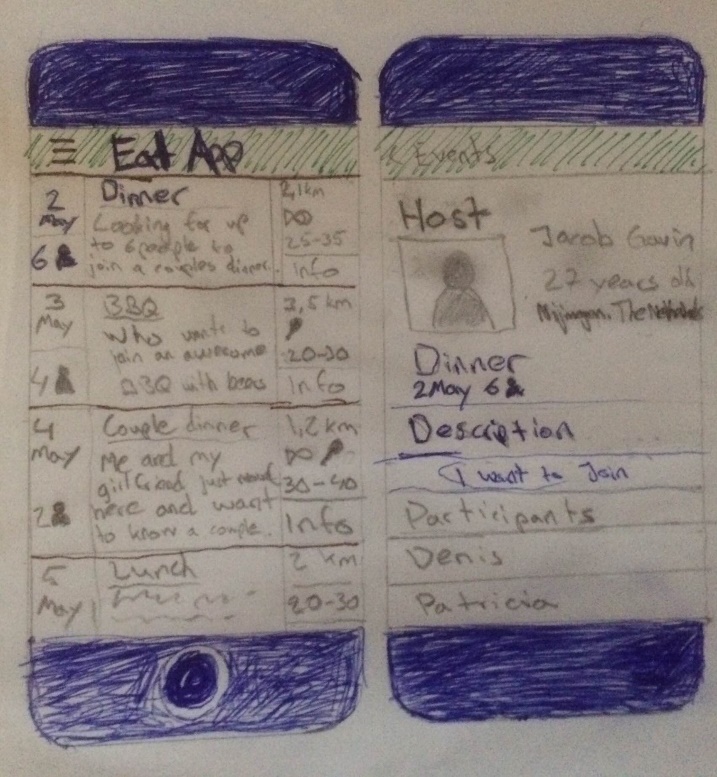 Eat App
2 May
6
Dinner
Looking for up
to 6 people to
join a couples dinner.
2,1km
25-35
Info
3 May
4
BBQ
Who wants to
join an awesome
BBQ with beers
3,5 km
20-30
Info
4 May
2
Couple dinner
Me and my
just moved
here and want
to know a couple.
1,2 km
30-40
Info
5 May
Lunch
2 km
20-30
< Events
Host
Jacob Gavin
27 years old
Nijmegen, The Netherlands
Dinner
2 May 6
Description
I want to Join
Participants
Denis
Patricia